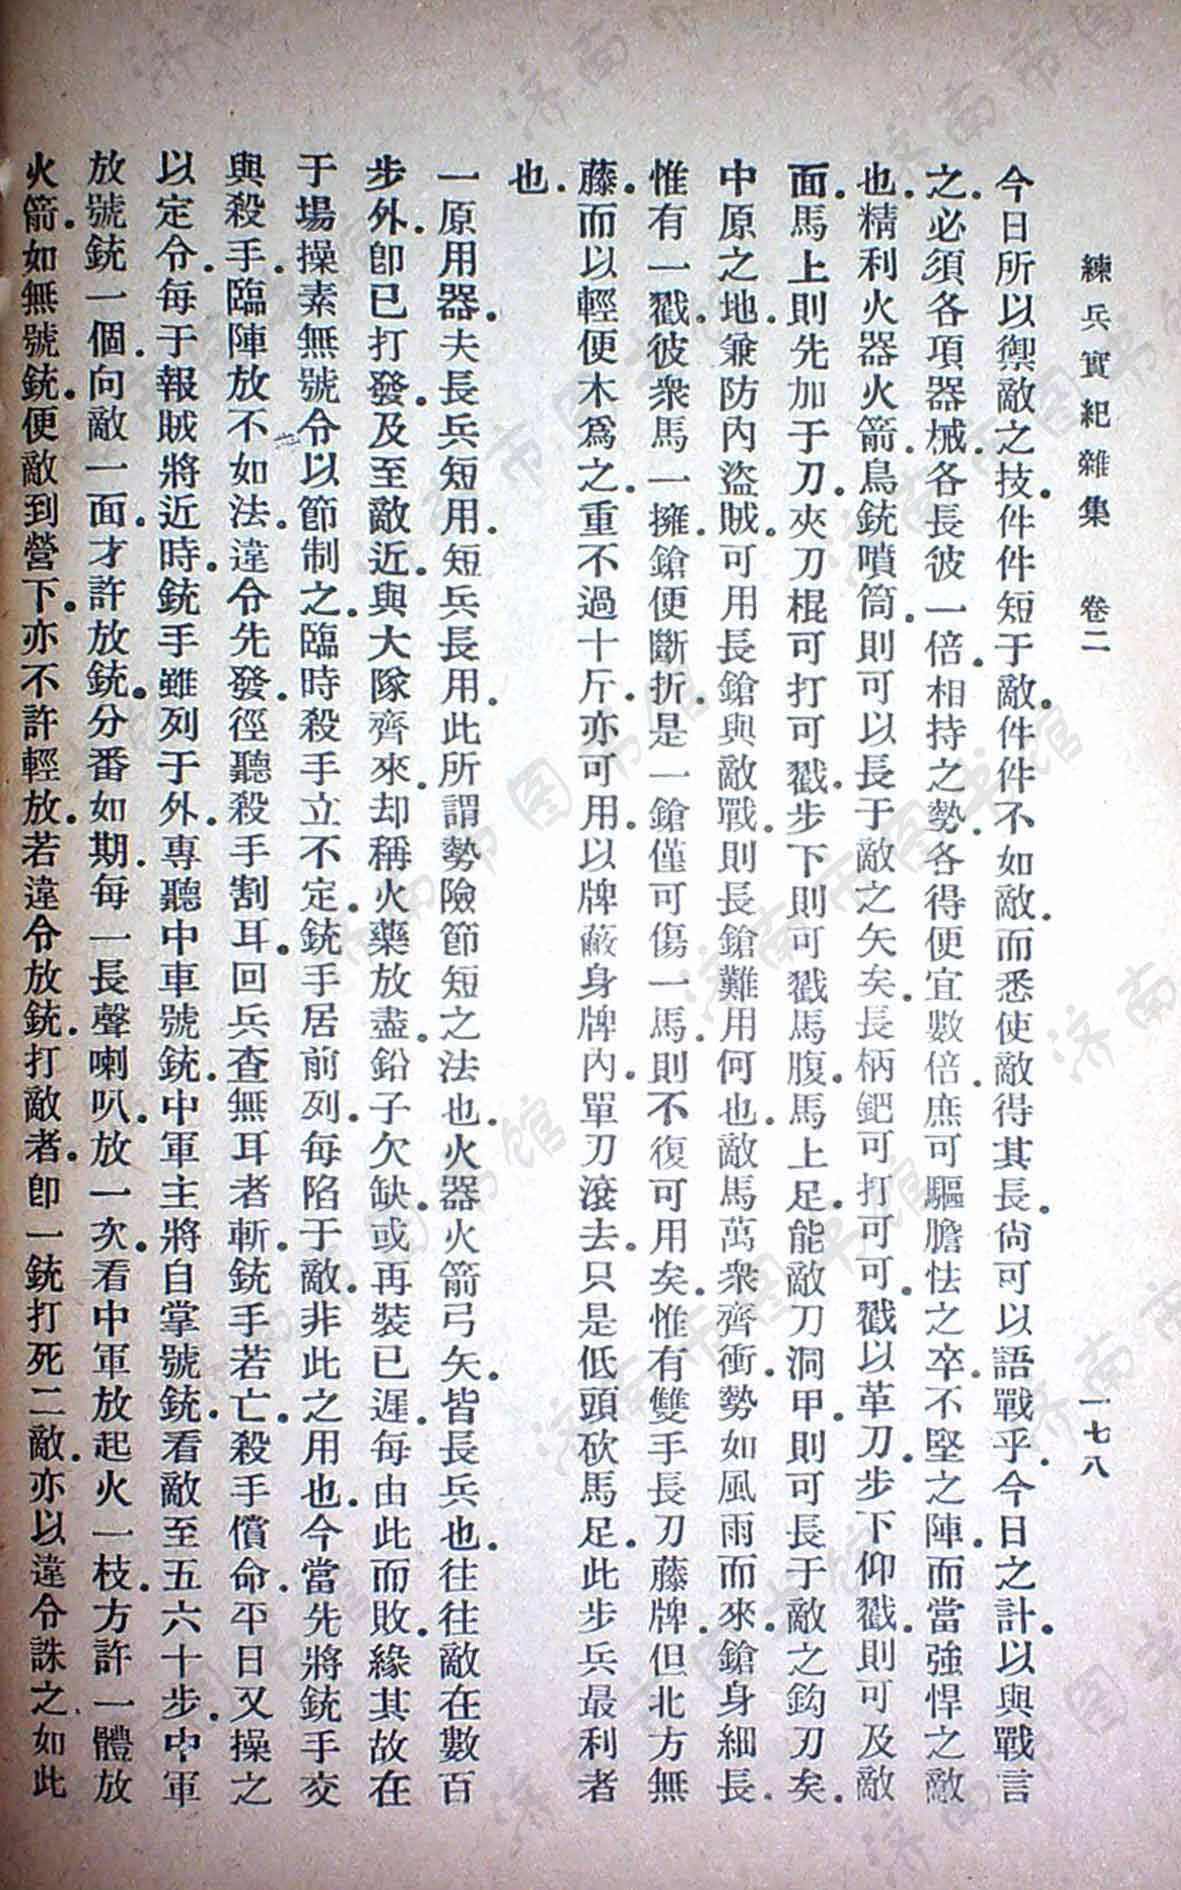 練兵實紀雜集　卷二　一七八
今日所以禦敵之技。件件短于敵。件件不如敵。而悉使敵得其長。尙可以語戰乎。今日之計。以與戰言
之。必須各項器械。各長彼一倍。相持之勢。各得便宜數倍。庶可驅膽怯之卒。不堅之陣。而當強悍之敵
也。精利火器火箭。鳥銃噴筒。則可以長于敵之矢矣。長柄鈀可打可可。戳以革刀。步下仰戳。則可及敵
面。馬上則先加于刀。夾刀棍可打可戳。步下則可戳馬腹。馬上足能敵刀洞甲。則可長于敵之鈎刀矣。
中原之地。兼防內盜賊。可用長鎗與敵戰。則長鎗難用。何也。敵馬萬衆齊衝。勢如風雨而來。鎗身細長。
惟有一戳。彼衆馬一擁。鎗便斷折。是一鎗僅可傷一馬。則不復可用矣。惟有雙手長刀藤牌。但北方無
藤。而以輕便木爲之。重不過十斤。亦可用。以牌蔽身。牌內單刀滾去。只是低頭砍馬足。此步兵最利者
也。
一原用器。夫長兵短用。短兵長用。此所謂勢險節短之法也。火器火箭弓矢。皆長兵也。往往敵在數百
步外。卽已打發。及至敵近。與大隊齊來。却稱火藥放盡。鉛子欠缺。或再裝已遲。每由此而敗。緣其故在
于場操素無號令以節制之。臨時殺手立不定。銃手居前列。每陷于敵。非此之用也。今當先將銃手交
與殺手。臨陣放不如法。違令先發。徑聽殺手割耳。回兵查無耳者斬。銃手若亡。殺手償命。平日又操之
以定令。每于報賊將近時。銃手雖列于外。專聽中車號銃。中軍主將自掌號銃。看敵至五六十步。中軍
放號銃一個。向敵一面。才許放銃。分番如期。每一長聲喇叭。放一次。看中軍放起火一枝。方許一體放
火箭。如無號銃。便敵到營下。亦不許輕放。若違令放銃。打敵者。卽一銃打死二敵。亦以違令誅之。如此